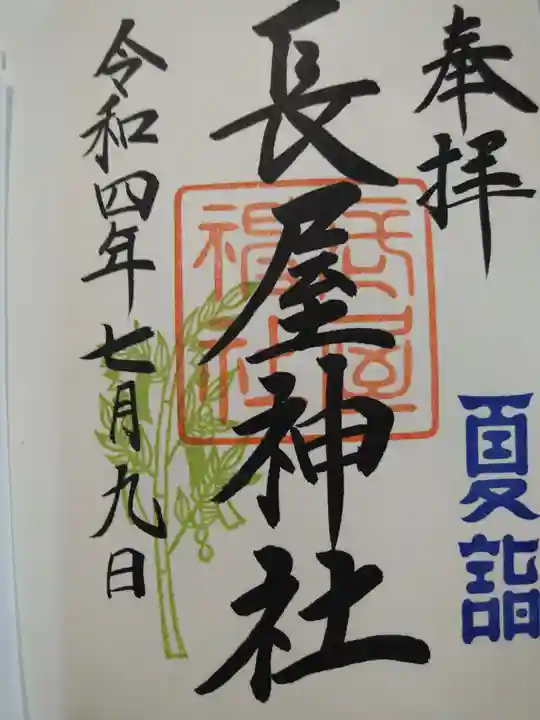 奉拝
夏詣
長屋神社
長屋神社
令和四年七月九日